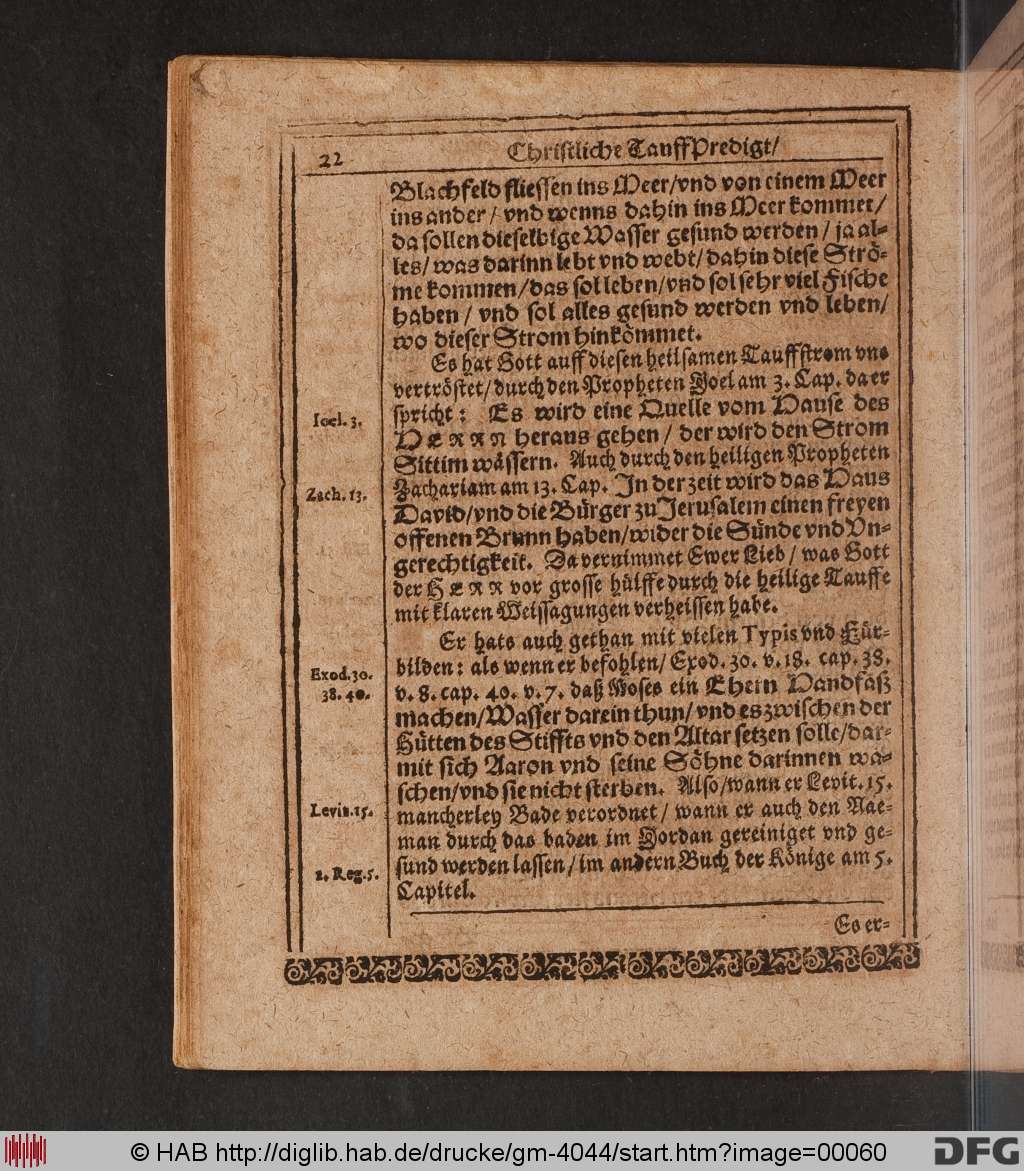 22
Christliche TauffPredigt/
Blachfeld fliessen ins Meer/vnd von einem Meer
ins ander / vnd wenns dahin ins Meer kommet/
da sollen dieselbige Wasser gesund werden / ja al-
les/ was darinn lebt vnd webt/ dahin diese Strö-
me kommen/das sol leben/vnd sol sehr viel Fische
haben / vnd sol alles gesund werden vnd leben/
wo dieser Strom hinkömmet.
Es hat Gott auff diesen heilsamen Tauffstrom vns
vertröstet/durch den Propheten Joel am 3. Cap. da er
Ioel. 3.
spricht: Es wird eine Quelle vom Hause des
HERRN heraus gehen / der wird den Strom
Sittim wässern. Auch durch den heiligen Propheten
Zach. 13.
Zachariam am 13. Cap. In der zeit wird das Haus
David/vnd die Bürger zu Jerusalem einen freyen
offenen Brunn haben/wider die Sünde vnd Vn-
gerechtigkeit. Da vernimmet Ewer Lieb / was Gott
der HERR vor grosse hülffe durch die heilige Tauffe
mit klaren Weissagungen verheissen habe.
Er hats auch gethan mit vielen Typis vnd Für-
bilden: als wenn er befohlen/ Exod. 30. v. 18. cap. 38.
Exod. 30.
38. 40.
v. 8. cap. 40. v. 7. daß Moses ein Ehern Handfaß
machen/Wasser darein thun/ vnd es zwischen der
Hütten des Stiffts vnd den Altar setzen solle/dar-
mit sich Aaron vnd seine Söhne darinnen wa-
schen/vnd sie nicht sterben. Also/wann er Levit. 15.
Levit. 15.
mancherley Bade verordnet / wann er auch den Nae-
man durch das baden im Jordan gereiniget vnd ge-
sund werden lassen / im andern Buch der Könige am 5.
2. Reg. 5.
Capitel.
Es er-
© HAB http://diglib.hab.de/drucke/gm-4044/start.htm?image=00060
DFG